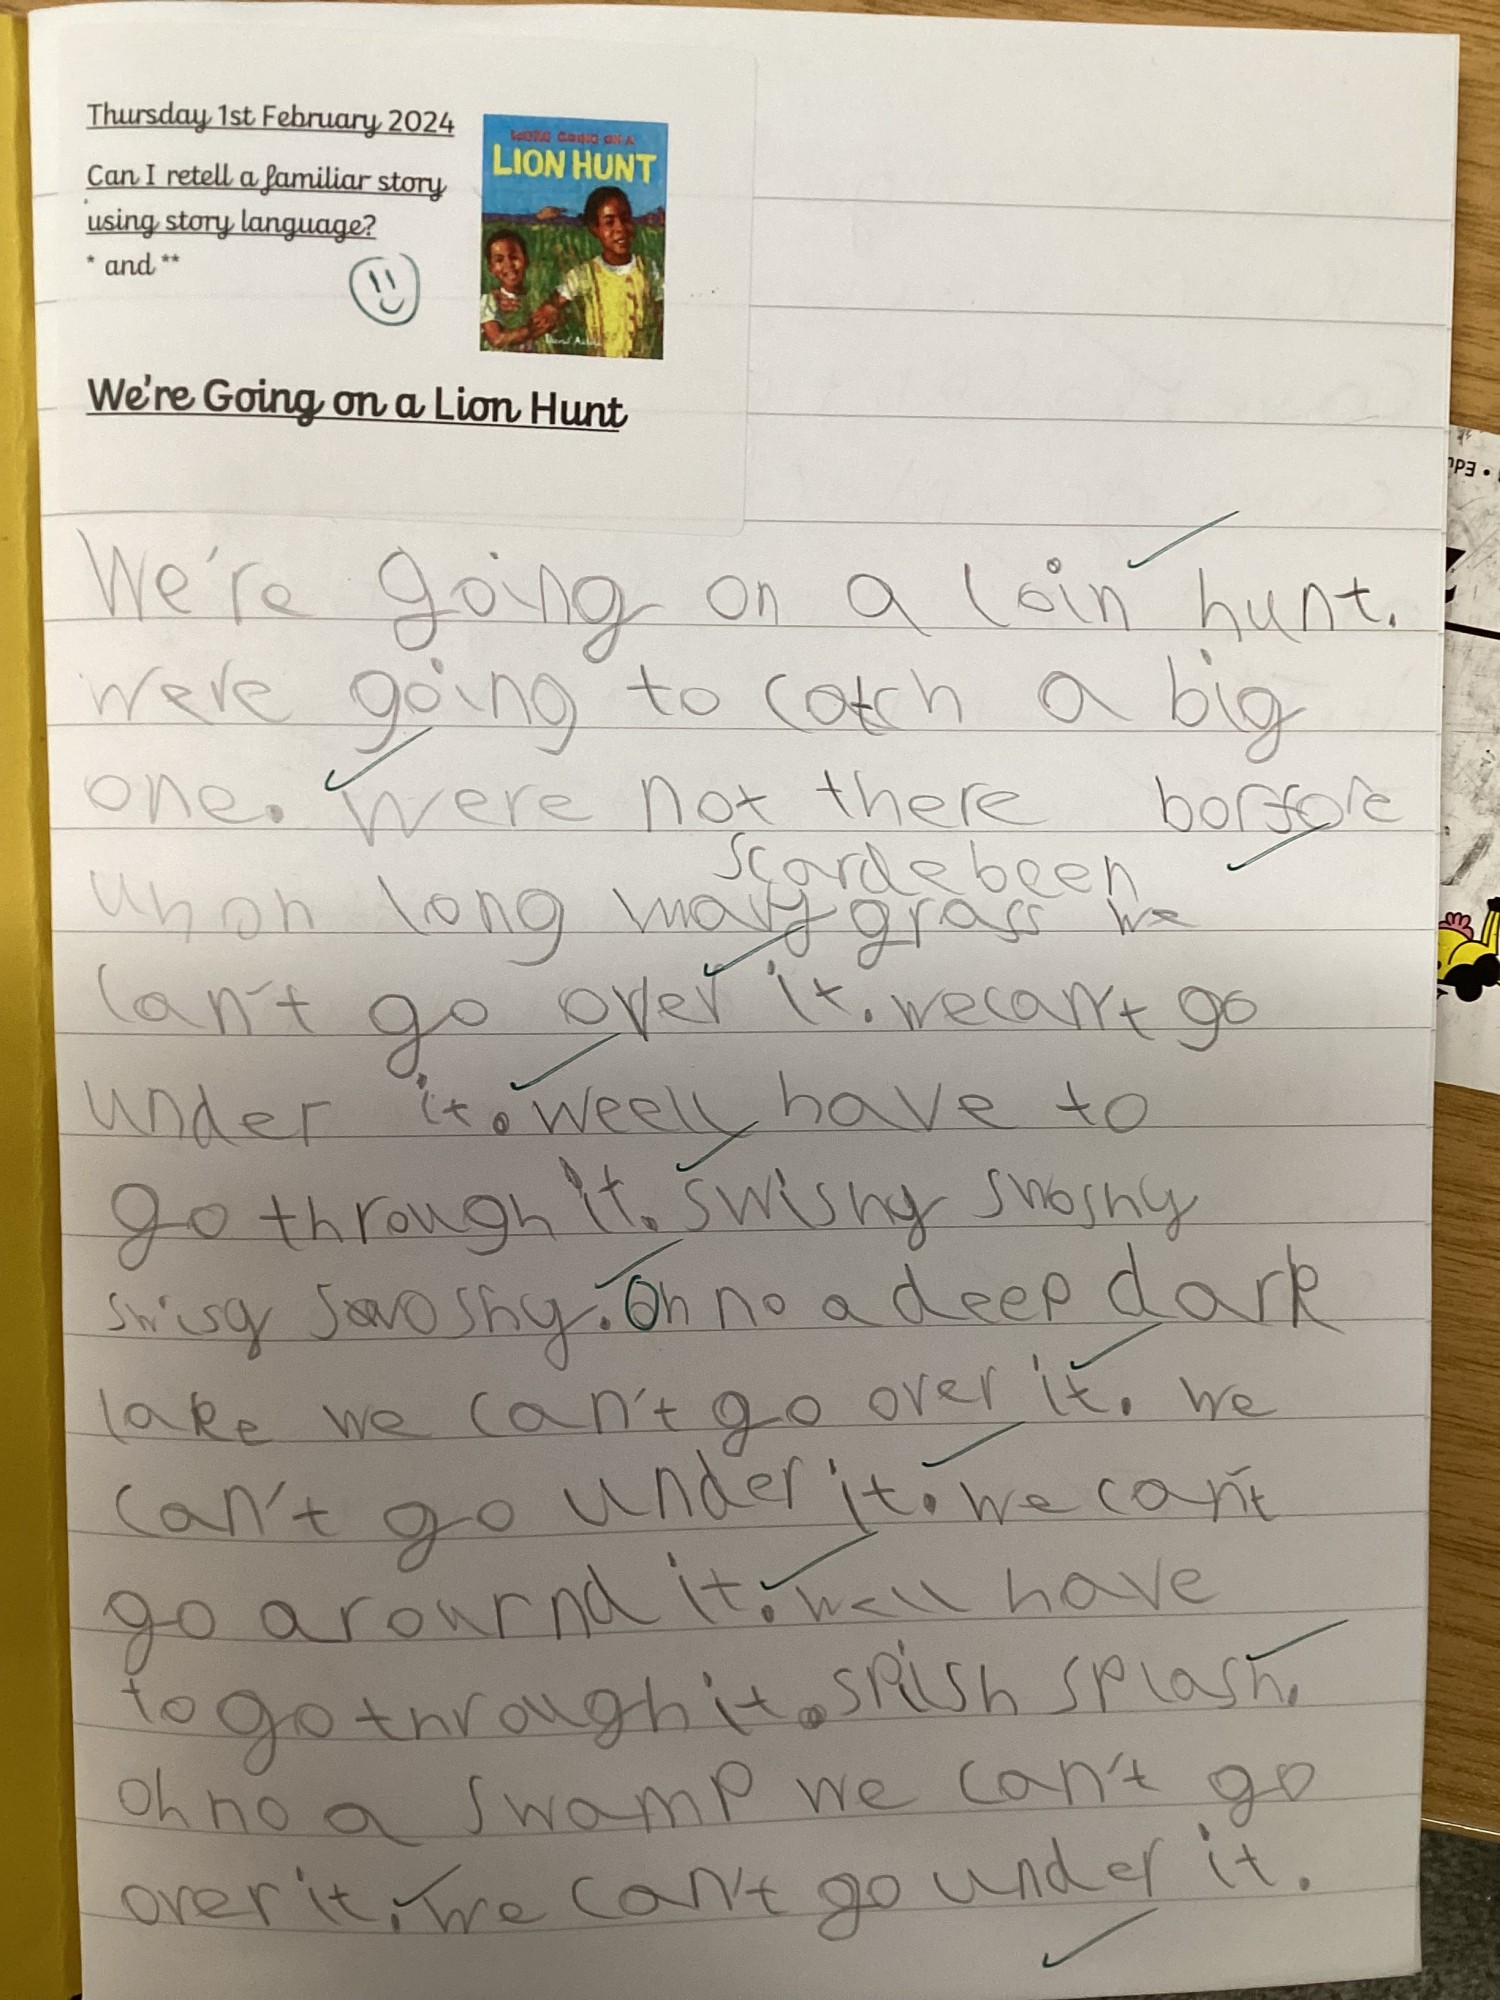 Thursday 1st February 2024
Can I retell a familiar story
using story language?
* and **
WE'RE GOING ON A
LION HUNT
David Axtell
We're Going on a Lion Hunt
We're going on a loin hunt.
were going to catch a big
one. Were not there
scarde been
long wavy grass we
can't go over it. we can't go
under it. weell have to
go through it. swishy swoshy
swisy swoshy. Oh no a deep dark
lake we can't go over it. we
can't go under it. we can't
go arournd it. well have
to go through it. splish splash.
oh no a swamp we can't go
over it. We can't go under it.